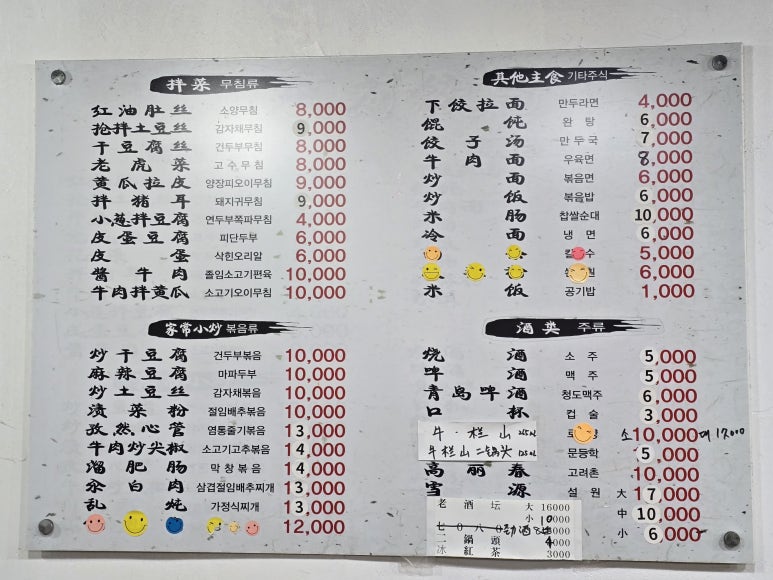 拌菜 무침류
红油肚丝 소양무침 8,000
抢拌土豆丝 감자채무침 9,000
干豆腐丝 건두부무침 8,000
老虎菜 고수무침 8,000
黄瓜拉皮 양장피오이무침 9,000
拌猪耳 돼지귀무침 9,000
小葱拌豆腐 연두부쪽파무침 4,000
皮蛋豆腐 피단두부 6,000
皮蛋 삭힌오리알 6,000
酱牛肉 졸임소고기편육 10,000
牛肉拌黄瓜 소고기오이무침 10,000
家常小炒 볶음류
炒干豆腐 건두부볶음 10,000
麻辣豆腐 마파두부 10,000
炒土豆丝 감자채볶음 10,000
渍菜粉 절임배추볶음 10,000
孜然心管 염통줄기볶음 13,000
牛肉炒尖椒 소고기고추볶음 14,000
溜肥肠 막창볶음 14,000
汆白肉 삼겹절임배추찌개 13,000
乱炖 가정식찌개 13,000
12,000
其他主食 기타주식
下饺拉面 만두라면 4,000
馄饨 완탕 6,000
饺子汤 만두국 7,000
牛肉面 우육면 8,000
炒面 볶음면 6,000
炒饭 볶음밥 6,000
米肠 찹쌀순대 10,000
冷面 냉면 6,000
수 5,000
6,000
米饭 공기밥 1,000
酒类 주류
烧酒 소주 5,000
啤酒 맥주 5,000
青岛啤酒 청도맥주 6,000
口杯 컵술 3,000
牛·栏山 소 10,000 대 17,000
牛栏山二锅头 문등학 5,000
高丽春 고려촌 10,000
雪源 설원 大 17,000
中 10,000
小 6,000
老酒坛 大 16000
小 10000
七0八0 劲酒
二鍋頭 4000
冰紅茶 3000